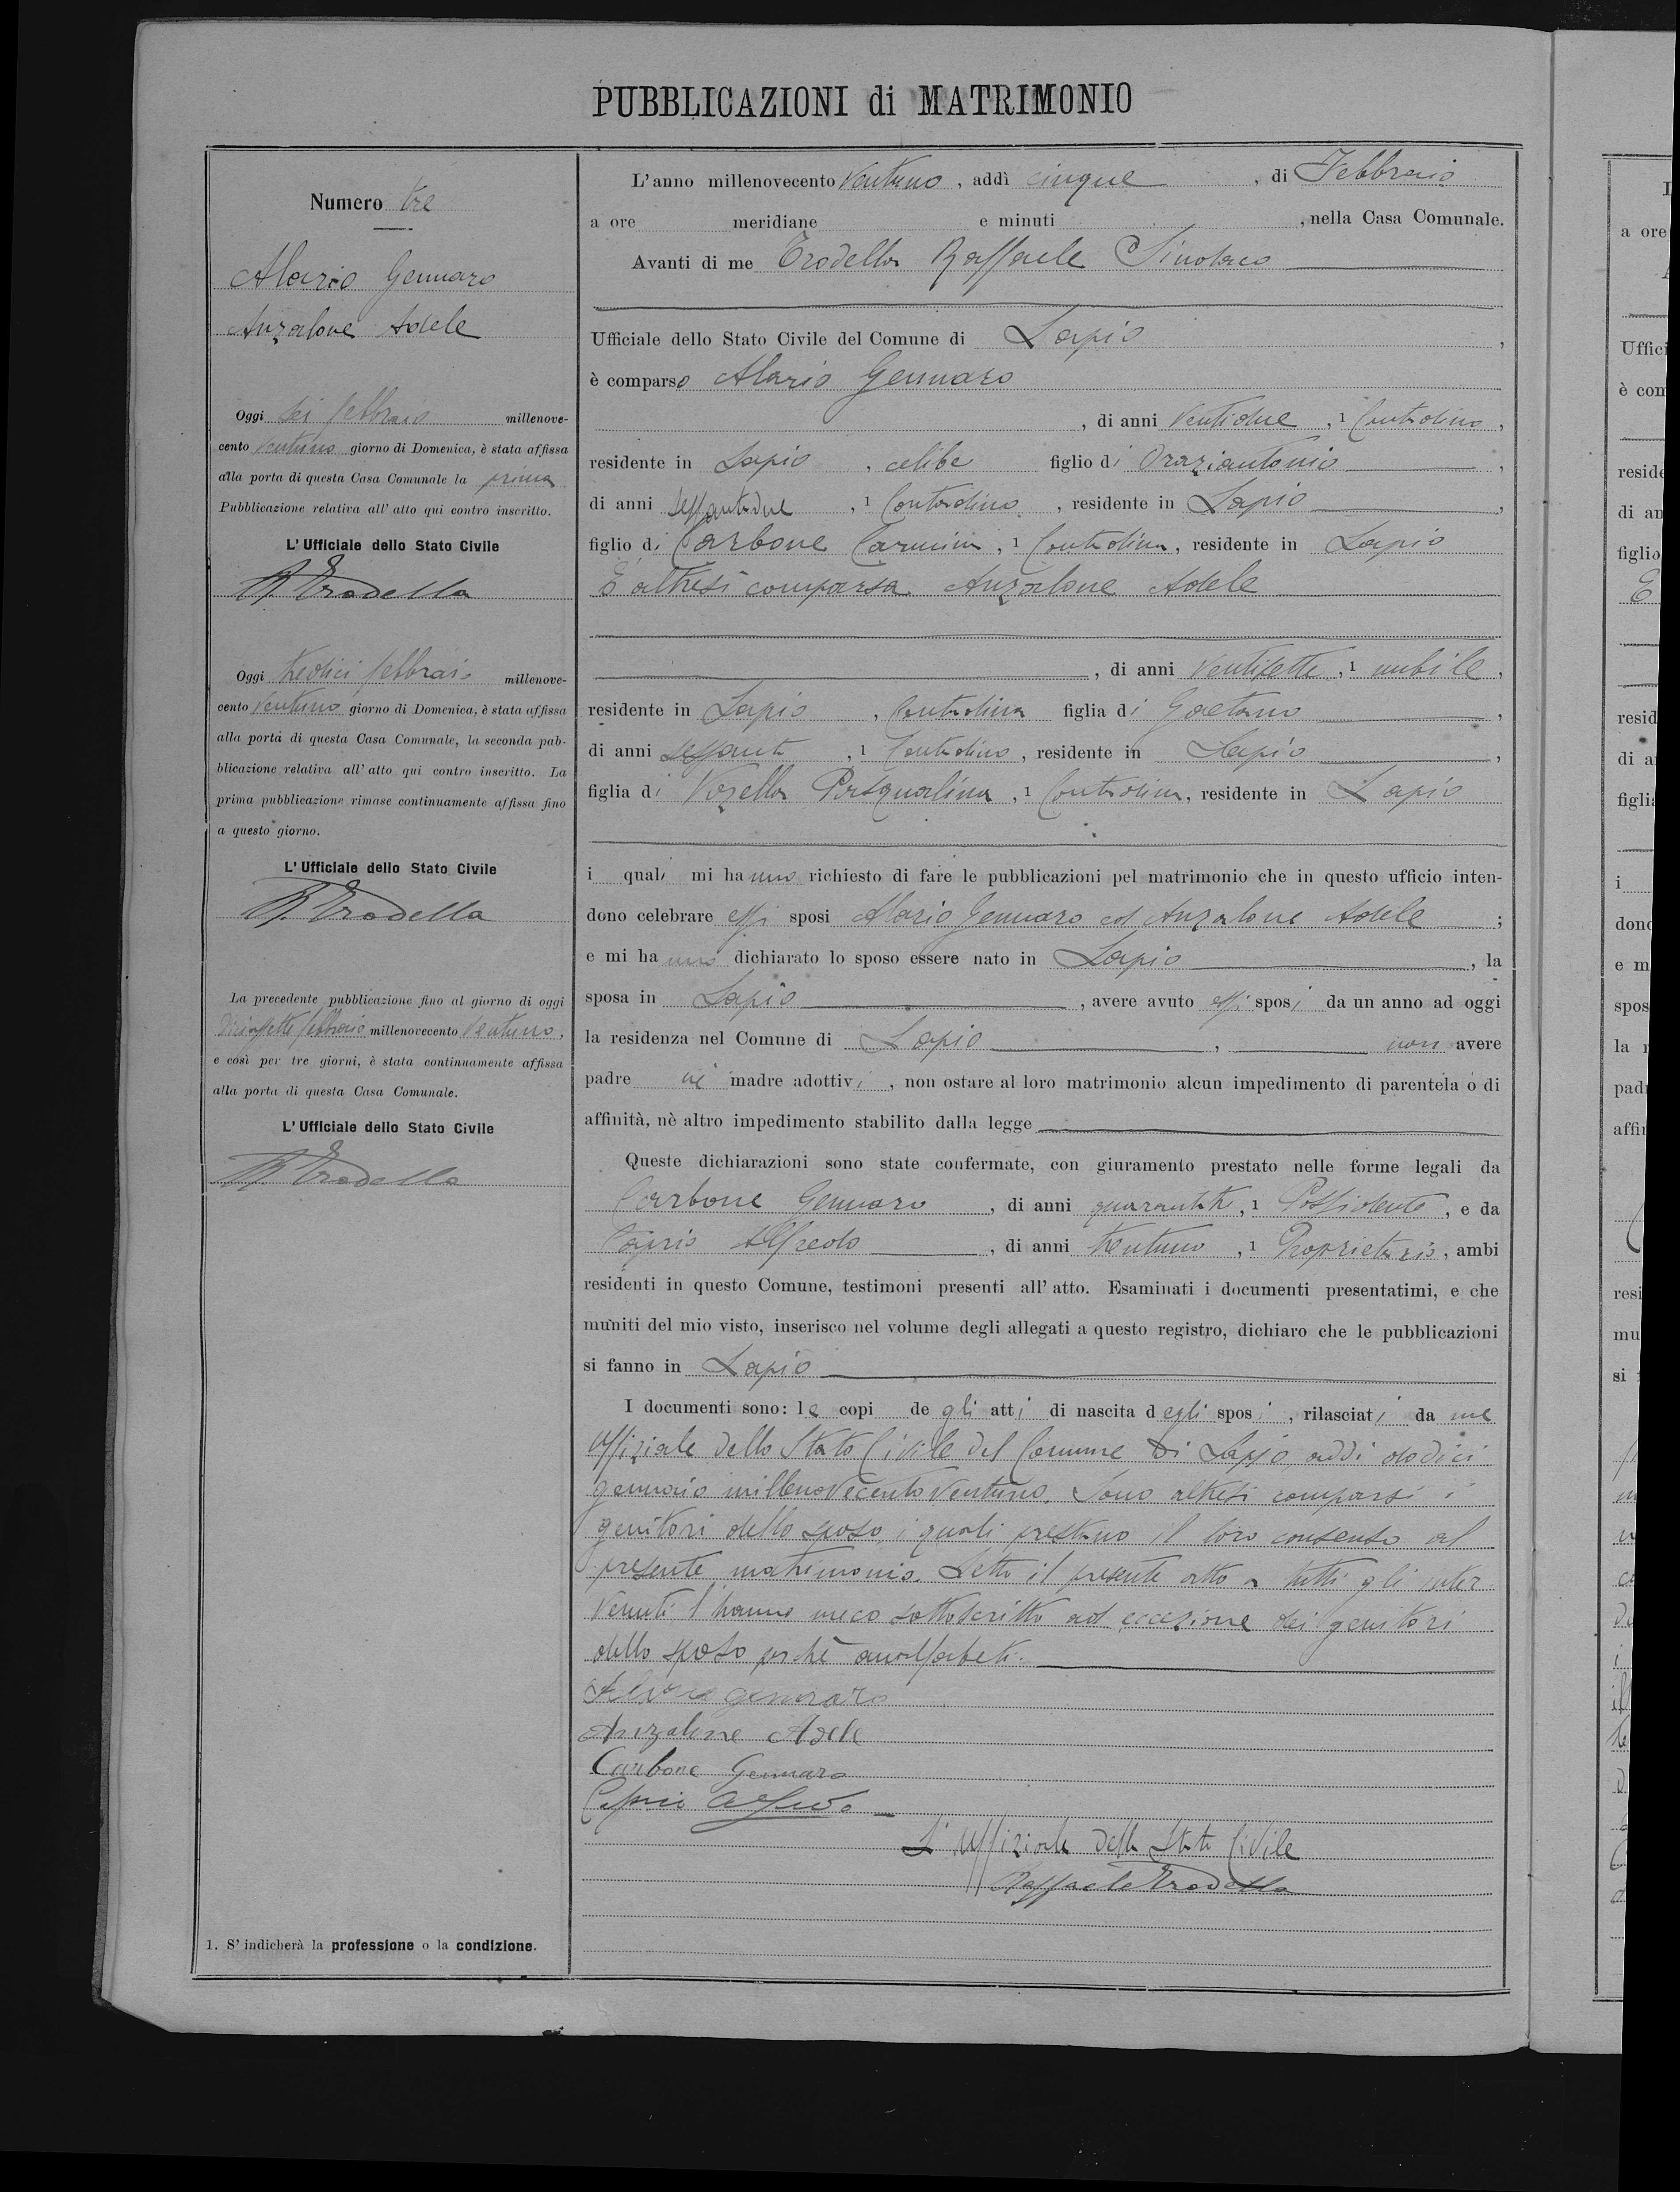 PUBBLICAZIONI di MATRIMONIO
Numero tre
Alario Gennaro
Anzalone Adele
Oggi sei febbraio millenove-
cento ventuno giorno di Domenica, è stata affissa
alla porta di questa Casa Comunale la prima
Pubblicazione relativa all' atto qui contro inscritto.
L' Ufficiale dello Stato Civile
R. Trodella
Oggi tredici febbraio millenove-
cento Ventuno giorno di Domenica, è stata affissa
alla porta di questa Casa Comunale, la seconda pub-
blicazione relativa all' atto qui contro inscritto. La
prima pubblicazione rimase continuamente affissa fino
a questo giorno.
L' Ufficiale dello Stato Civile
R. Trodella
La precedente pubblicazione fino al giorno di oggi
diciassette febbraio millenovecento Ventuno,
e così per tre giorni, è stata continuamente affissa
alla porta di questa Casa Comunale.
L' Ufficiale dello Stato Civile
R. Trodella
1. S' indicherà la professione o la condizione.
L'anno millenovecento Ventuno, addì cinque, di Febbraio
a ore meridiane e minuti , nella Casa Comunale.
Avanti di me Trodella Raffaele Sindaco
Ufficiale dello Stato Civile del Comune di Lapio,
è comparso Alario Gennaro
, di anni Ventidue, 1 Contadino,
residente in Lapio, celibe figlio di Oraziantonio,
di anni sessantadue, 1 Contadino, residente in Lapio,
figlio di Carbone Carmina, 1 Contadina, residente in Lapio
È altresì comparsa Anzalone Adele
, di anni Ventisette, 1 nubile,
residente in Lapio, Contadina figlia di Gaetano,
di anni sessanta, 1 Contadino, residente in Lapio,
figlia di Vozella Pasqualina, 1 Contadina, residente in Lapio
i quali mi hanno richiesto di fare le pubblicazioni pel matrimonio che in questo ufficio inten-
dono celebrare essi sposi Alario Gennaro ed Anzalone Adele;
e mi hanno dichiarato lo sposo essere nato in Lapio, la
sposa in Lapio, avere avuto essi sposi da un anno ad oggi
la residenza nel Comune di Lapio, non avere
padre nè madre adottivi, non ostare al loro matrimonio alcun impedimento di parentela o di
affinità, nè altro impedimento stabilito dalla legge
Queste dichiarazioni sono state confermate, con giuramento prestato nelle forme legali da
Carbone Gennaro, di anni quarantatre, 1 Possidente, e da
Caprio Alfredo, di anni trentuno, 1 Proprietario, ambi
residenti in questo Comune, testimoni presenti all' atto. Esaminati i documenti presentatimi, e che
muniti del mio visto, inserisco nel volume degli allegati a questo registro, dichiaro che le pubblicazioni
si fanno in Lapio
I documenti sono: le copi degli atti di nascita degli sposi, rilasciati da me
Uffiziale dello Stato Civile del Comune di Lapio addi dodici
gennaio millenovecentoventuno. Sono altresi comparsi i
genitori dello sposo, i quali prestano il loro consenso al
presente matrimonio. Letto il presente atto a tutti gli inter
venuti l'hanno meco sottoscritto ad eccezione dei genitori
dello sposo perchè analfabeti.
Alario gennaro
Anzalone Adele
Carbone Gennaro
Caprio Alfredo
L'Uffiziale dello Stato Civile
Raffaele Trodella